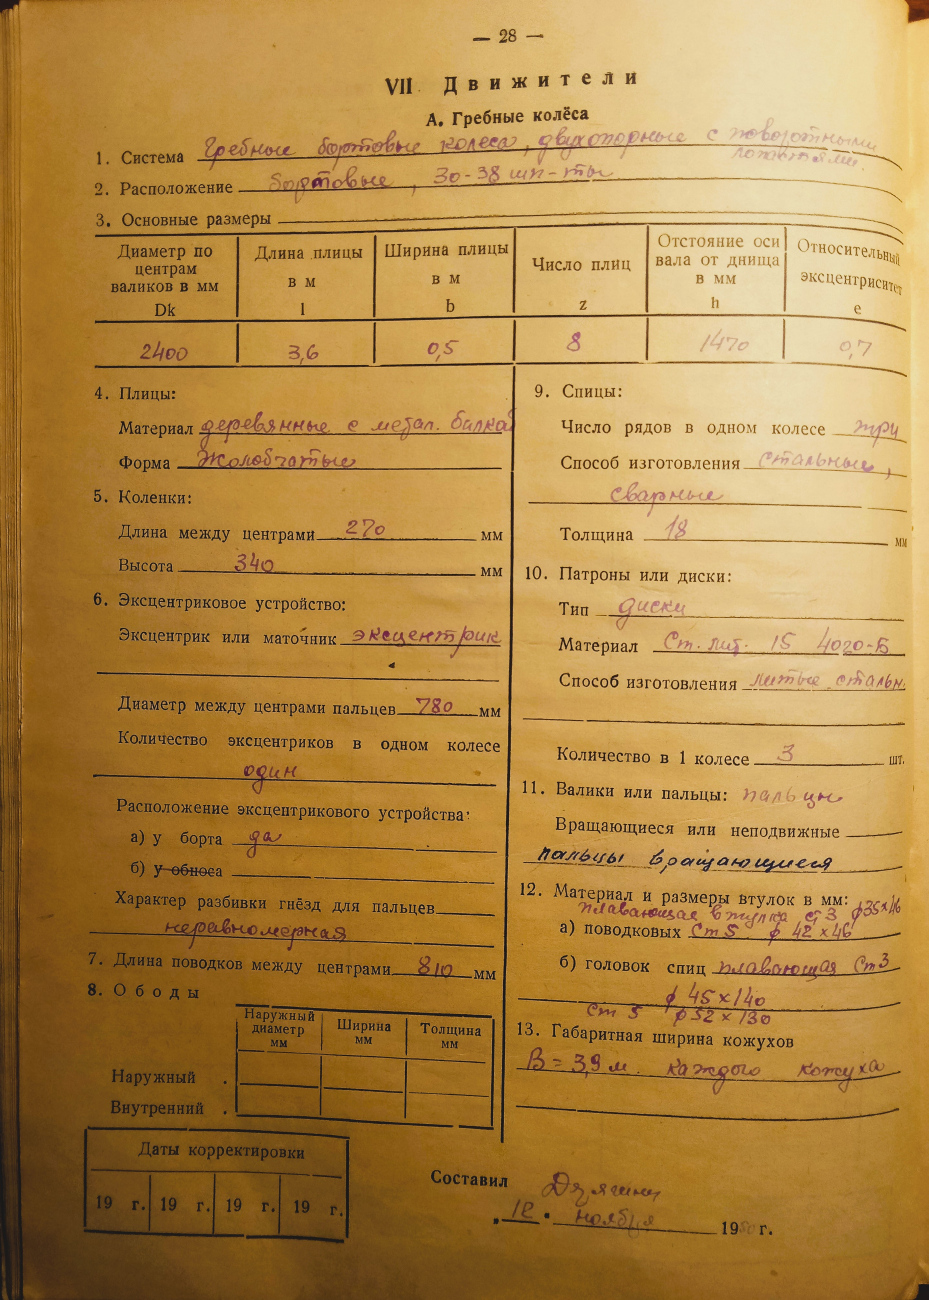 — 28 —
VII Движители
А. Гребные колёса
1. Система Гребные бортовые колеса, двухопорные с поворотными
лопастями
2. Расположение бортовые, 30-38 шп-ты
3. Основные размеры
Диаметр по центрам валиков в мм Dk
Длина плицы в м l
Ширина плицы в м b
Число плиц z
Отстояние оси вала от днища в мм h
Относительный эксцентриситет e
2400 3,6 0,5 8 1470 0,7
4. Плицы:
Материал деревянные с метал. балкой
Форма Жолобчатые
5. Коленки:
Длина между центрами 270 мм
Высота 340 мм
6. Эксцентриковое устройство:
Эксцентрик или маточник эксцентрик
Диаметр между центрами пальцев 780 мм
Количество эксцентриков в одном колесе
один
Расположение эксцентрикового устройства:
а) у борта да
б) у обноса
Характер разбивки гнёзд для пальцев
неравномерная
7. Длина поводков между центрами 810 мм
8. Ободы
Наружный диаметр мм
Ширина мм
Толщина мм
Наружный .
Внутренний .
9. Спицы:
Число рядов в одном колесе три
Способ изготовления стальные,
сварные
Толщина 18 мм
10. Патроны или диски:
Тип диски
Материал Ст. лит. 15 4020-Б
Способ изготовления литые стальн.
Количество в 1 колесе 3 шт.
11. Валики или пальцы: пальцы
Вращающиеся или неподвижные
пальцы вращающиеся
12. Материал и размеры втулок в мм:
плавающая втулка ст 3 ϕ35×46
а) поводковых Ст 5. ϕ 42×46
б) головок спиц плавающая Ст3
ϕ 45×140
Ст 5 ϕ52×130
13. Габаритная ширина кожухов
B = 3,9 м. каждого кожуха
Даты корректировки
19 г. 19 г. 19 г. 19 г.
Составил
„12" ноября 19 г.